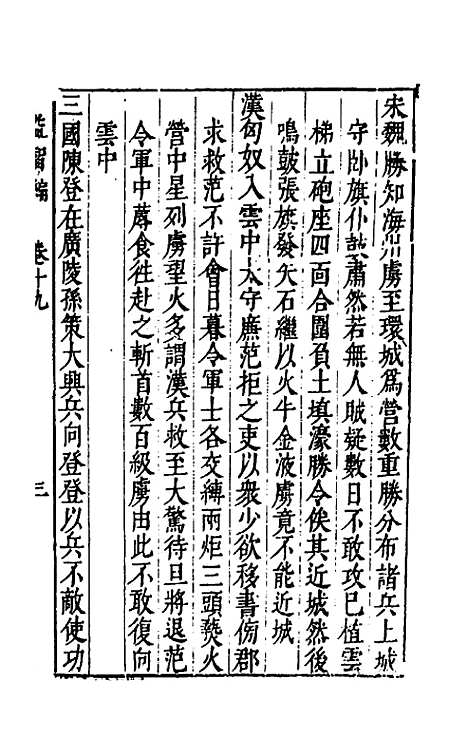 宋魏勝知海州虜至環城爲營數重勝分布諸兵上城
守卧旗仆皷肅然若無人賊疑數日不敢攻已植雲
梯立砲座四面合圍負土填濠勝令俟其近城然後
鳴鼓張旗發矢石繼以火牛金液虜竟不能近城
漢匈奴入雲中太守廉范拒之吏以衆少欲移書傍郡
求救范不許會日暮令軍士各交縛兩炬三頭爇火
營中星列虜望火多謂漢兵救至大驚待旦將退范
令軍中蓐食往赴之斬首數百級虜由此不敢復向
雲中
三國陳登在廣陵孫策大興兵向登登以兵不敵使功
卷十九
三